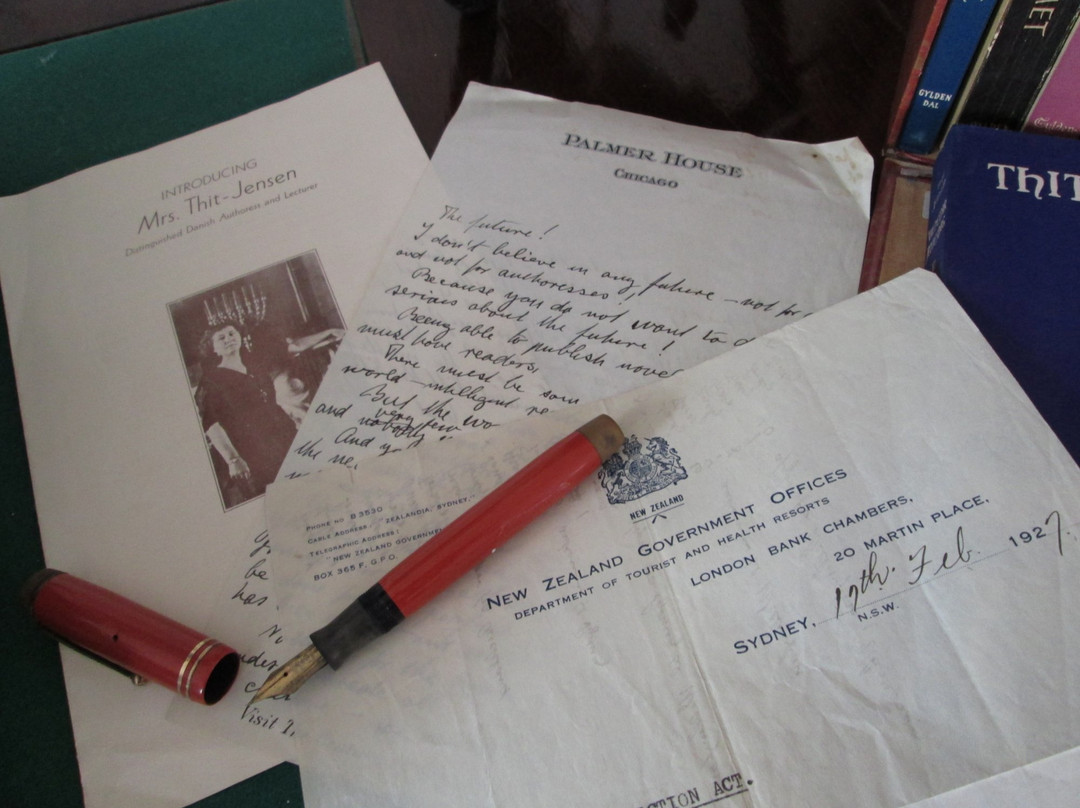 INTRODUCING
Mrs. Thit-Jensen
Distinguished Danish Authoress and Lecturer
PALMER HOUSE
CHICAGO
The future!
I don't believe in any future – not for
and not for authoresses!,
Because you do not want to
serious about the future!
Being able to publish
must have readers,
There must be
world – intelligent
But the
very few
and nobody
And
the
be
has
Visit
PHONE NO B3530
CABLE ADDRESS: "ZEALANDIA, SYDNEY,"
TELEGRAPHIC ADDRESS:
"NEW ZEALAND GOVERNMEN
BOX 365 F, G.P.O.
NEW ZEALAND
NEW ZEALAND GOVERNMENT OFFICES
DEPARTMENT OF TOURIST AND HEALTH RESORTS
LONDON BANK CHAMBERS,
20 MARTIN PLACE,
SYDNEY, 17th. Feb. 1927.
N.S.W.
CTION ACT.
GYLDEN
DAL
MET
THIT